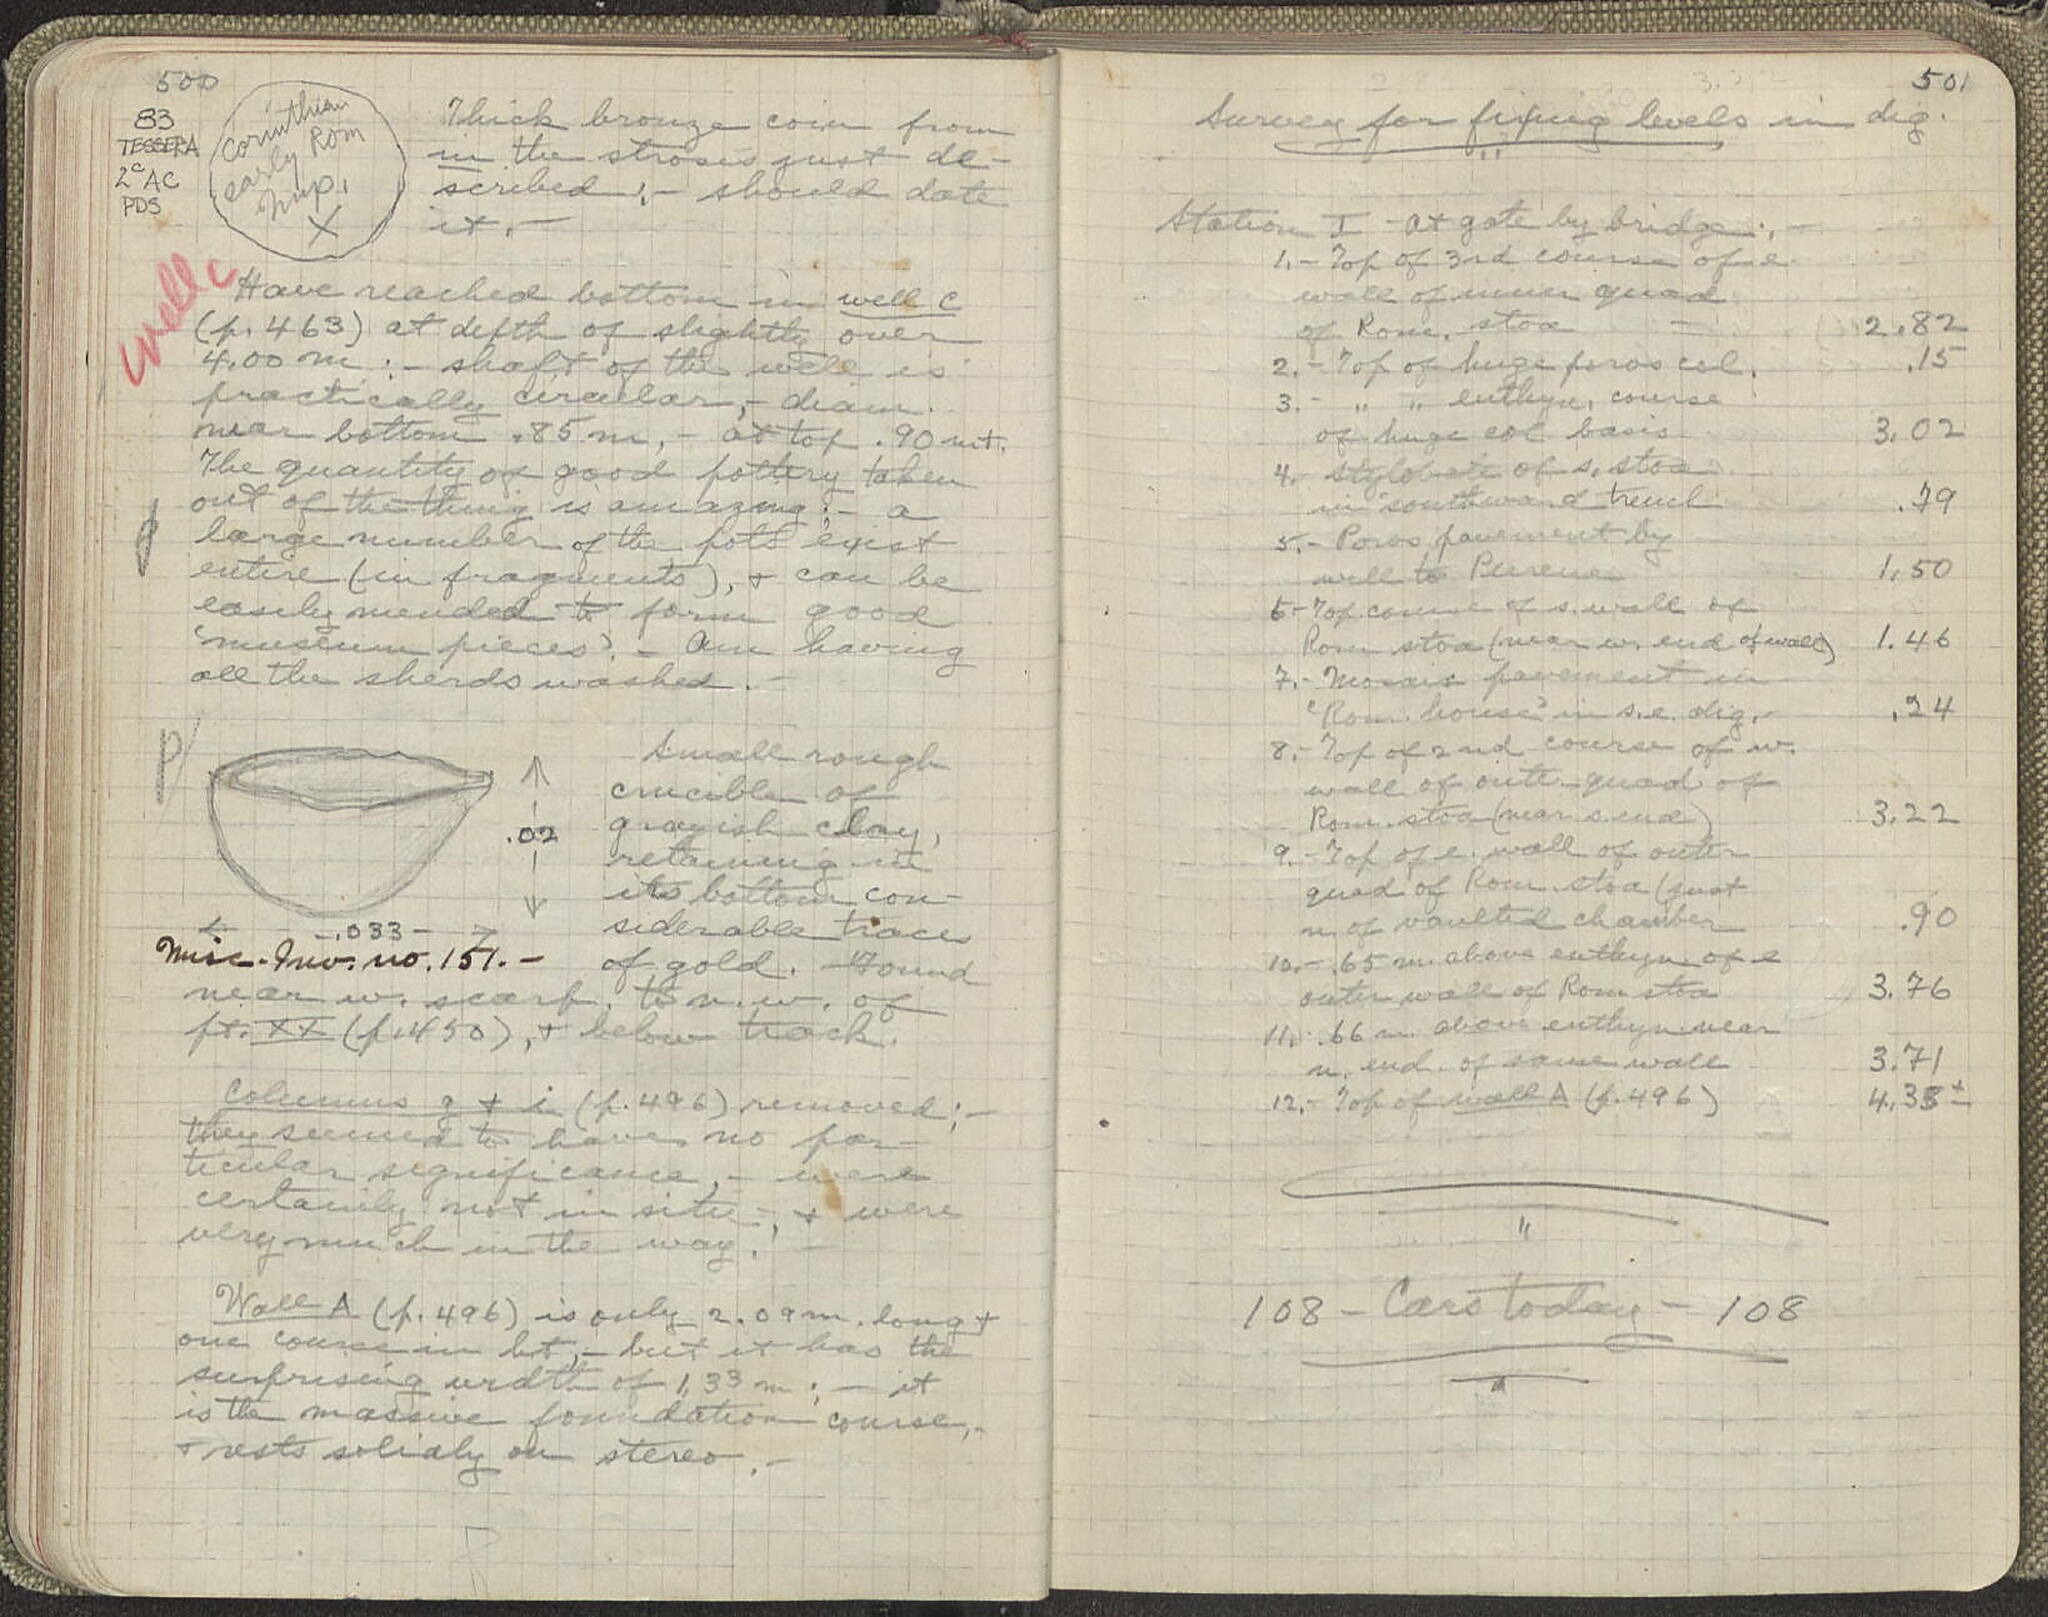 500
83
TESSERA
2c AC
PDS
Corinthian
early Rom
Imp.
X
Thick bronze coin from
in the strosis just de-
scribed ;- should date
it. -
Well C
Have reached bottom in well C
(p. 463) at depth of slightly over
4.00 m :- shaft of the well is
practically circular, - diam.
near bottom .85 m, - at top .90 mt.
The quantity of good pottery taken
out of the thing is amazing ;- a
large number of the pots exist
entire (in fragments), + can be
easily mended to form good
'museum pieces'. - Am having
all the sherds washed. -
P/
Small rough
crucible of
grayish clay,
.02
retaining in
its bottom con-
siderable traces
.033
Misc. Inv. no. 151. -
of gold. Found
near w. scarp. to n.w. of
pt. XX (p. 450), + below track.
Columns g + i (p. 496) removed ;-
they seemed to have no par-
ticular significance, - were
certainly not in situ -, + were
very much in the way. -
Wall A (p. 496) is only 2.09 m. long +
one course in ht, - but it has the
surprising width of 1,33 m ; - it
is the massive foundation course, -
+ rests solidly on stereo. -
501
Survey for fixing levels in dig.
Station I - at gate by bridge :, -
1. - Top of 3rd course of e.
wall of inner quad
of Rom. stoa = 2.82
2. - Top of huge poros col. .15
3. - " " euthyn. course
of huge col basis 3.02
4. - Stylobate of s. stoa
in southward trench .79
5. - Poros pavement by
well to Pirene 1,50
6 - Top course of s. wall of
Rom stoa (near w. end of wall) 1.46
7. - Mosaic pavement in
'Rom. house' in s.e. dig. - .24
8. - Top of 2nd course of w.
wall of outer quad of
Rom. stoa (near s. end) 3.22
9. - Top of e. wall of outer
quad of Rom. stoa (just
n. of vaulted chamber .90
10. - .65 m. above euthyn. of e
outer wall of Rom stoa 3.76
11. - .66 m. above euthyn. near
n. end. of same wall 3.71
12. - Top of wall A (p. 496) 4.33±
108 - Cars today - 108